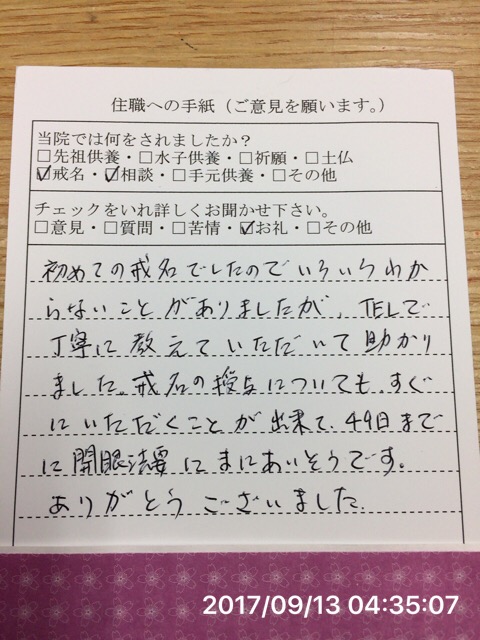 住職への手紙（ご意見を願います。）
当院では何をされましたか？
□先祖供養・□水子供養・□祈願・□土仏
☑戒名・☑相談・□手元供養・□その他
チェックをいれ詳しくお聞かせ下さい。
□意見・□質問・□苦情・☑お礼・□その他
初めての戒名でしたのでいろいろわか
らないことがありましたが、TELで
丁寧に教えていただいて助かり
ました。戒名の授与についても、すぐ
にいただくことが出来て、49日まで
に開眼法要にまにあいそうです。
ありがとうございました
2017/09/13 04:35:07